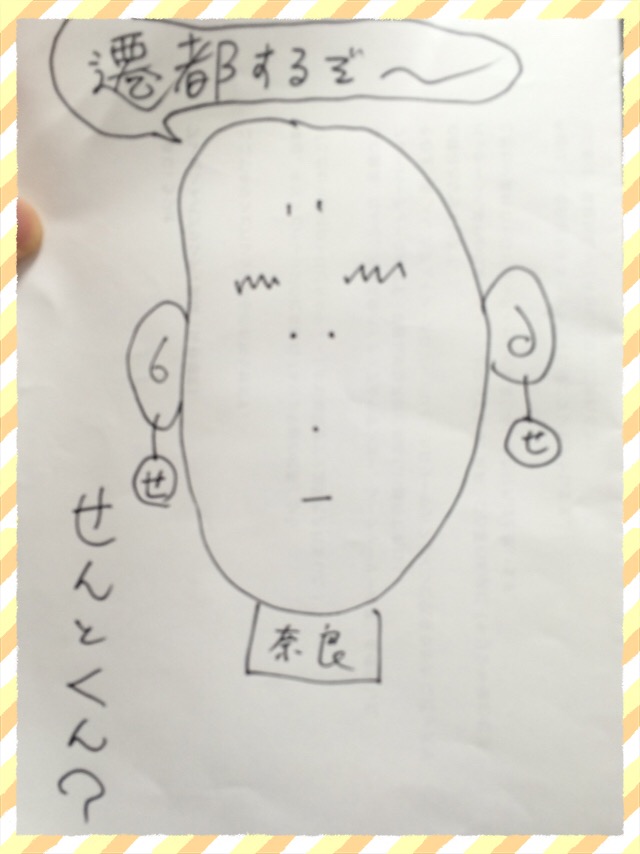 遷都するぞ〜
せ
せ
奈良
せんとくん?